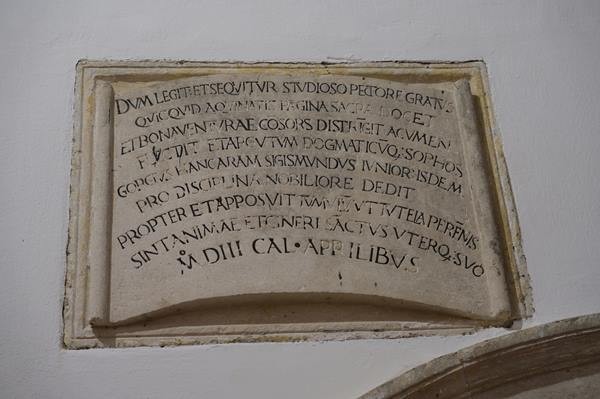 DVM LEGIT·ET SEQVITVR STVDIOSO PECTORE GRATVS
QVICQVID AQVINATIS PAGINA SACRA DOCET
ET BONAVENTVRAE COSORS DISTRIGIT ACVMEN
ET ACVTVM DOGMATICVQ; SOPHOS
GORGVS HANC ARAM SIGISMVNDVS IVNIOR·ISDEM
PRO DISCIPLINA NOBILIORE DEDIT
PROPTER ET APPOSVIT TVMVLV VT TVTELA PERENIS
SINT ANIMAE ET CINERI SACTVS VTERQ; SVO
M DIII CAL·APRILIBVS